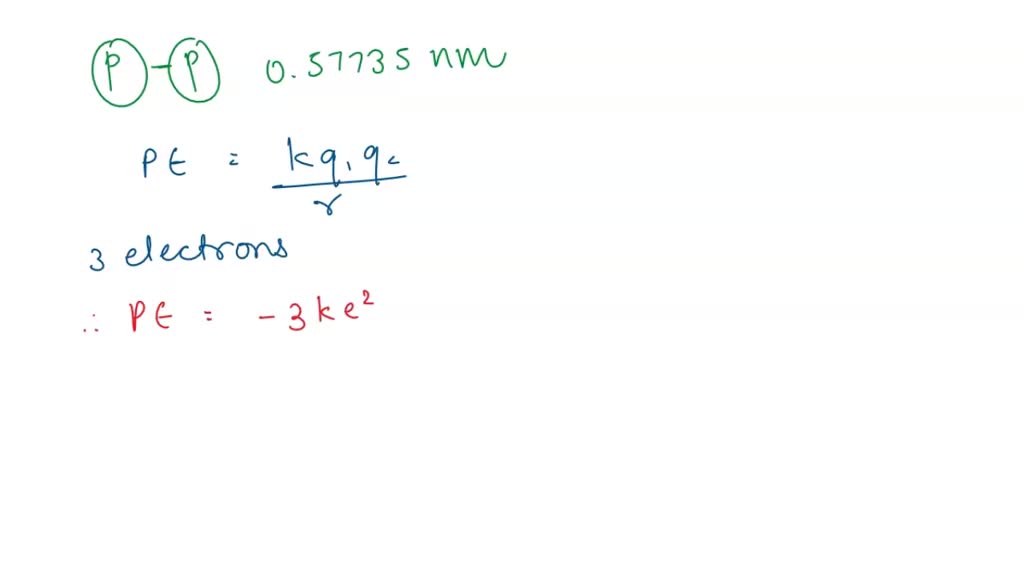 P - P 0.57735 nm
PE = kq₁q₂
r
3 electrons
∴ PE = -3ke²